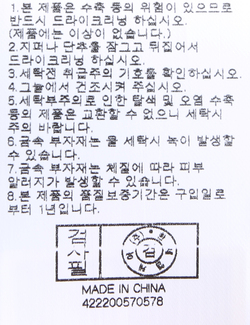 1.본 제품은 수축 등의 위험이 있으므로
반드시 드라이크리닝 하십시오.
(제품에는 이상이 없습니다.)
2.지퍼나 단추를 잠그고 뒤집어서
드라이크리닝 하십시오.
3.세탁전 취급주의 기호를 확인하십시오.
4.그늘에서 건조시켜 주십시오.
5.세탁부주의로 인한 탈색 및 오염 수축
등의 제품은 교환할 수 없으니 세탁시
주의 바랍니다.
6.금속 부자재는 물 세탁시 녹이 발생할
수 있습니다.
7.금속 부자재는 체질에 따라 피부
알러지가 발생할 수 있습니다.
8.본 제품의 품질보증기간은 구입일로
부터 1년입니다.
검사필
검
MADE IN CHINA
422200570578